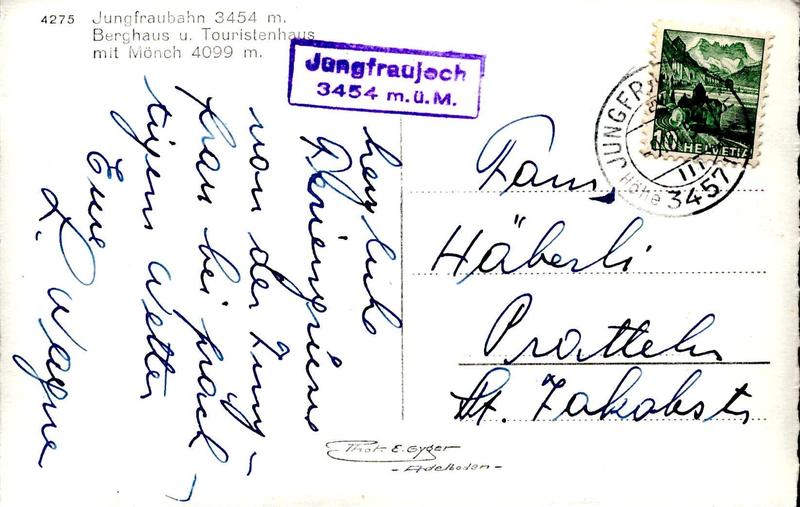 4275 Jungfraubahn 3454 m.
Berghaus u. Touristenhaus
mit Mönch 4099 m.
Jungfraujoch
3454 m.ü.M.
10 HELVETIA
Höhe 3457
herzliche
Feriengrüsse
von der Jung-
frau bei präch-
tigem Wetter
Eure
L. Wagner
Fam.
Häberli
Pratteln
St. Jakobstr
Phot. E. Gyger
- Adelboden -